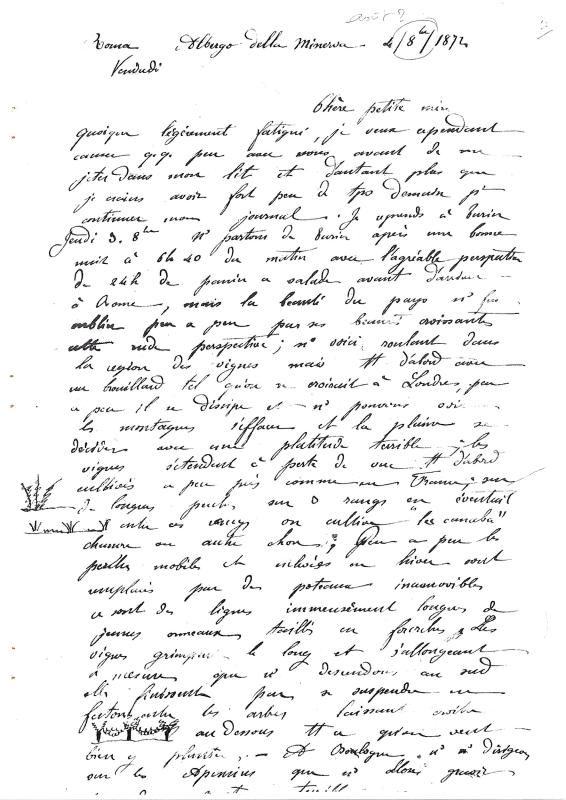 août ?
Roma Albergo della Minerva - 4/8bre/1872
Vendredi
Chère petite mère
quoique légèrement fatigué, je veux cependant
causer q.q. peu avec vous avant de me
jeter dans mon lit et d'autant plus que
je crains avoir fort peu de tps demain pr
continuer mon journal. Je reprends à turin
Jeudi 3. 8bre Ns partons de turin après une bonne
nuit à 6h 40 du matin avec l'agréable perspective
de 24h de panier a salade avant d'arriver
à Rome, mais la beauté du pays ns fit
oublier peu a peu par ses beautés croissantes
cette rude perspective; ns voici roulant dans
la region des vignes mais tt d'abord avec
un brouillard tel qu'on se croirait à Londres, peu
a peu il se dissipe et ns pouvons voir
les montagnes s'effacer et la plaine se
dérouler avec une platitude terrible - les
vignes s'étendent à perte de vue tt d'abord
cultivées a peu près comme en France, sur
de longues perches sur 3 rangs en éventail
entre ces rangs on cultive "les cannabs"
chanvre ou autre chose; Peu a peu les
perches mobiles et enlevées en hiver sont
remplacées par des poteaux inamovibles
ce sont des lignes immensément longues de
jeunes ormeaux taillés en fourches. Les
vignes grimpent le long et s'allongeant
à mesure que ns descendons au sud
elles finissent par se suspendre en
festons entre les arbres laissant croître
au dessous tt ce qu'on veut
bien y planter. - A Boulogne ns ns dirigeons
sur les Apennins que ns allons gravir